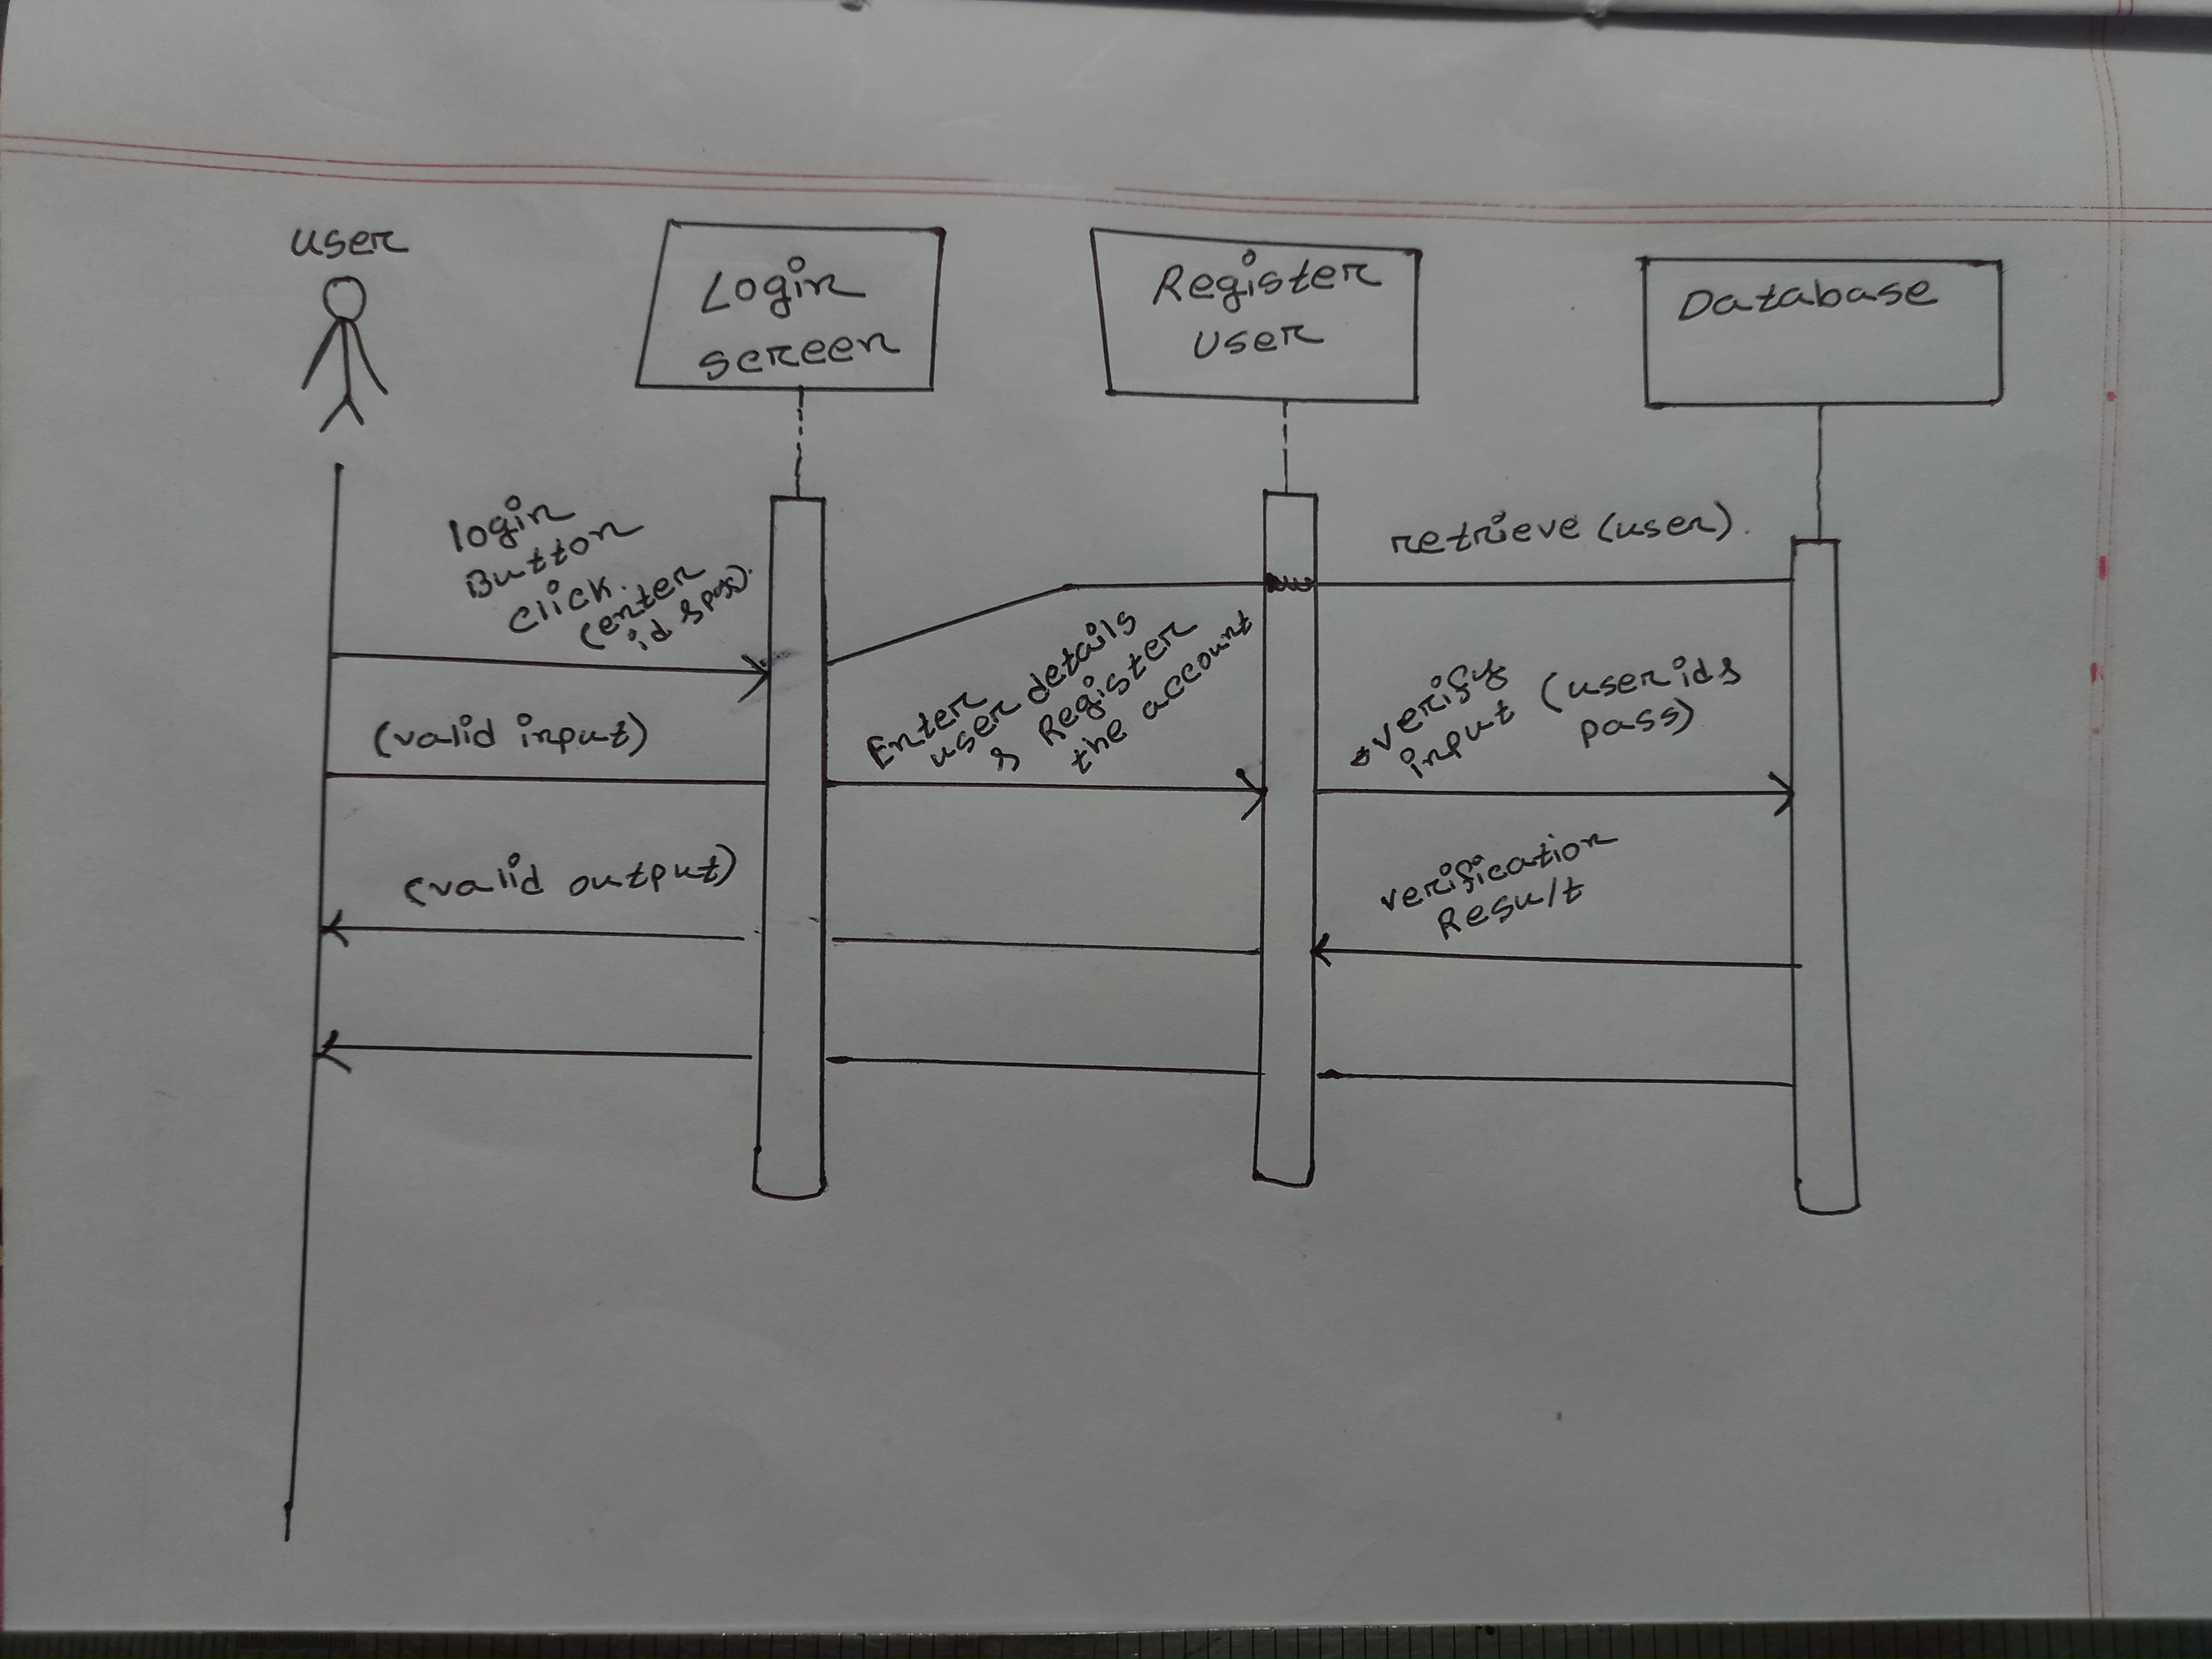 user
Login
screen
Register
user
Database
login
Button
click.
(enter
id & pass).
retrieve (user).
(valid input)
Enter
user details
& Register
the account
verify
input (user id &
pass)
(valid output)
verification
Result